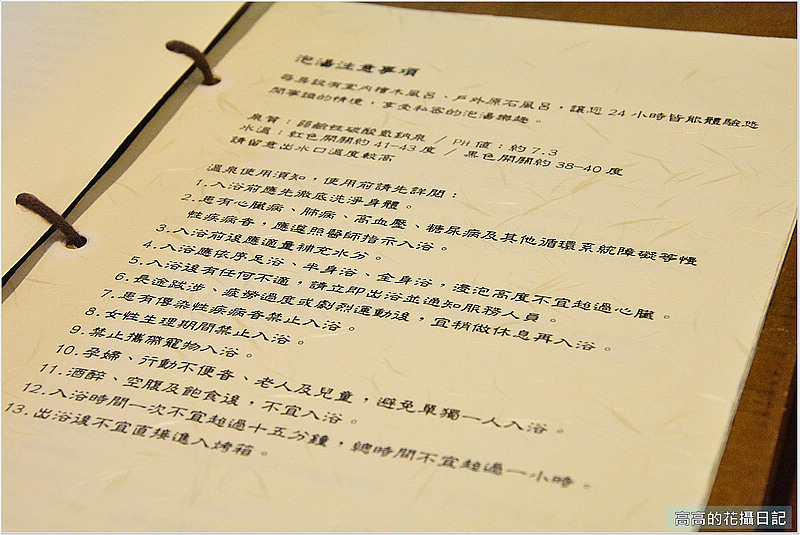 泡湯注意事項
每房設有室內檜木風呂、戶外原石風呂，讓您 24 小時皆能體驗悠
閒寧謐的情境，享受私密的泡湯樂趣。
泉質：弱鹼性碳酸氫鈉泉 / PH 值：約 7.3
水溫：紅色開關約 41-43 度 / 黑色開關約 38-40 度
請留意出水口溫度較高
溫泉使用須知，使用前請先詳閱：
1.入浴前應先澈底洗淨身體。
2.患有心臟病、肺病、高血壓、糖尿病及其他循環系統障礙等慢
性疾病者，應遵照醫師指示入浴。
3.入浴前後應適量補充水分。
4.入浴應依序足浴、半身浴、全身浴，浸泡高度不宜超過心臟。
5.入浴後有任何不適，請立即出浴並通知服務人員。
6.長途跋涉、疲勞過度或劇烈運動後，宜稍做休息再入浴。
7.患有傳染性疾病者禁止入浴。
8.女性生理期間禁止入浴。
9.禁止攜帶寵物入浴。
10.孕婦、行動不便者、老人及兒童，避免單獨一人入浴。
11.酒醉、空腹及飽食後，不宜入浴。
12.入浴時間一次不宜超過十五分鐘，總時間不宜超過一小時。
13.出浴後不宜直接進入烤箱。
高高的花攝日記